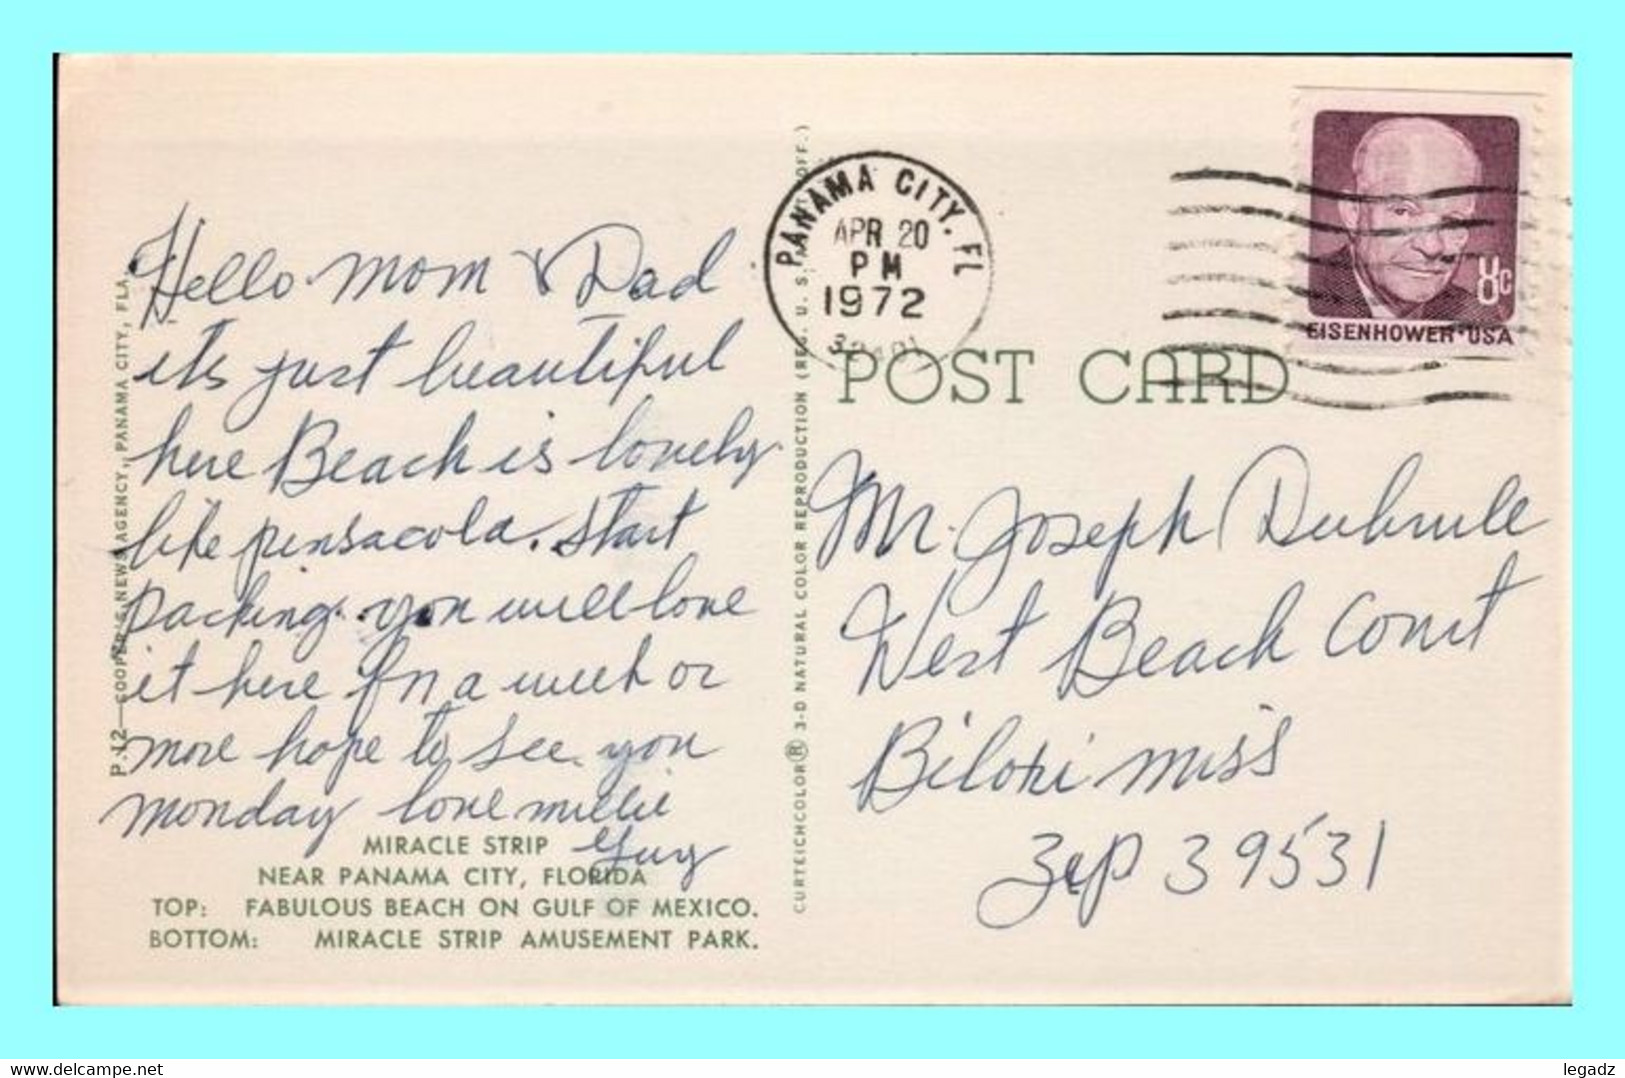 Hello mom & Dad
its just beautiful
here Beach is lovely
like pensacola. Start
packing. you will love
it here for a week or
more hope to see you
monday love millie
Guy
MIRACLE STRIP
NEAR PANAMA CITY, FLORIDA
TOP: FABULOUS BEACH ON GULF OF MEXICO.
BOTTOM: MIRACLE STRIP AMUSEMENT PARK.
P.12—COOPER'S NEWS AGENCY, PANAMA CITY, FLA.
CURTEICHCOLOR® 3-D NATURAL COLOR REPRODUCTION (REG. U. S. OFF.)
PANAMA CITY, FL
APR 20
PM
1972
POST CARD
8c
EISENHOWER·USA
Mr. Joseph Dubrule
West Beach Court
Biloxi miss
Zip 39531
delcampe.net
legadz